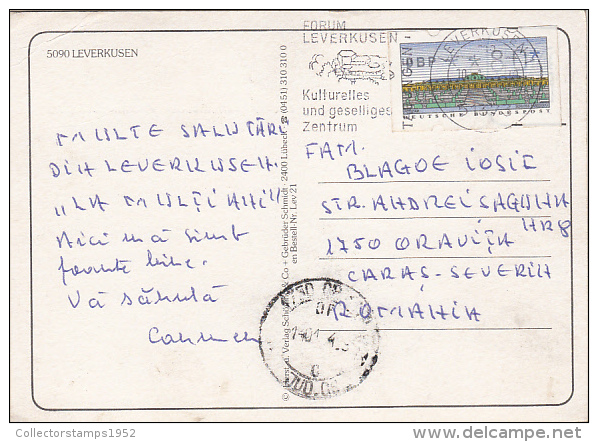 5090 LEVERKUSEN
FORUM
LEVERKUSEN
Kulturelles
und geselliges
Zentrum
LEVERKUSEN
DBP
DEUTSCHE BUNDESPOST
MULTE SALUTĂRI
DIN LEVERKUSEN.
„LA MULȚI ANI"
Aici mă simt
foarte bine.
Vă sărută
Carmen
& Co + Gebrüder Schmidt · 2400 Lübeck (0451) 310 310 0
Bestell-Nr. Lev 21
FAM.
BLAGOE IOSIF
STR. ANDREI ȘAGUNA
NR 8
1750 ORAVIȚA
CARAȘ-SEVERIN
ROMANIA
JUD. CS
Collectorstamps1952
delcampe.net